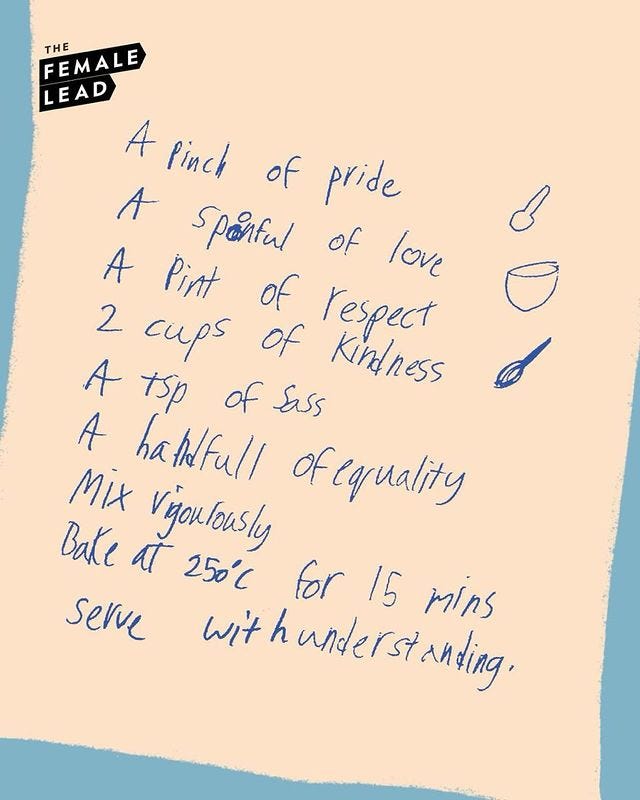 THE
FEMALE
LEAD
A pinch of pride
A sponful of love
A pint of respect
2 cups of kindness
A tsp of sass
A handfull of equality
Mix vigourously
Bake at 250°c for 15 mins
serve with understanding.